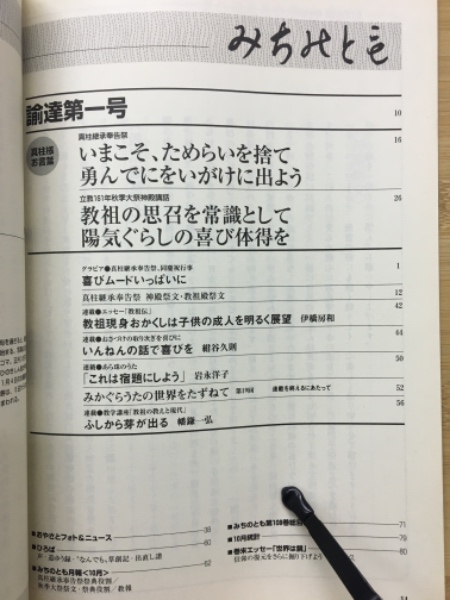 みちのとも
諭達第一号 10
真柱継承奉告祭 16
真柱様
お言葉
いまこそ、ためらいを捨て
勇んでにをいがけに出よう
立教161年秋季大祭神殿講話 26
教祖の思召を常識として
陽気ぐらしの喜び体得を
グラビア●真柱継承奉告祭、同慶祝行事 1
喜びムードいっぱいに
真柱継承奉告祭 神殿祭文・教祖殿祭文 12
連載●エッセー「教祖伝」 42
教祖現身おかくしは子供の成人を明るく展望 伊橋房和
連載●おさづけの取り次ぎを喜びに 44
いんねんの話で喜びを 紺谷久則
連載●あら珠のうた 50
「これは宿題にしよう」 岩永洋子
みかぐらうたの世界をたずねて 第19回 連載を終えるにあたって 52
連載●教学講座「教祖の教えと現代」 56
ふしから芽が出る 幡鎌一弘
■おやさとフォト&ニュース 38
■ひろば 60
■みちのとも月報<10月> 62
真柱継承奉告祭祭典役割/
秋季大祭祭文・祭典役割/教報
■みちのとも第108巻総目 71
■10月統計 79
■巻末エッセー「世界は鏡」 80